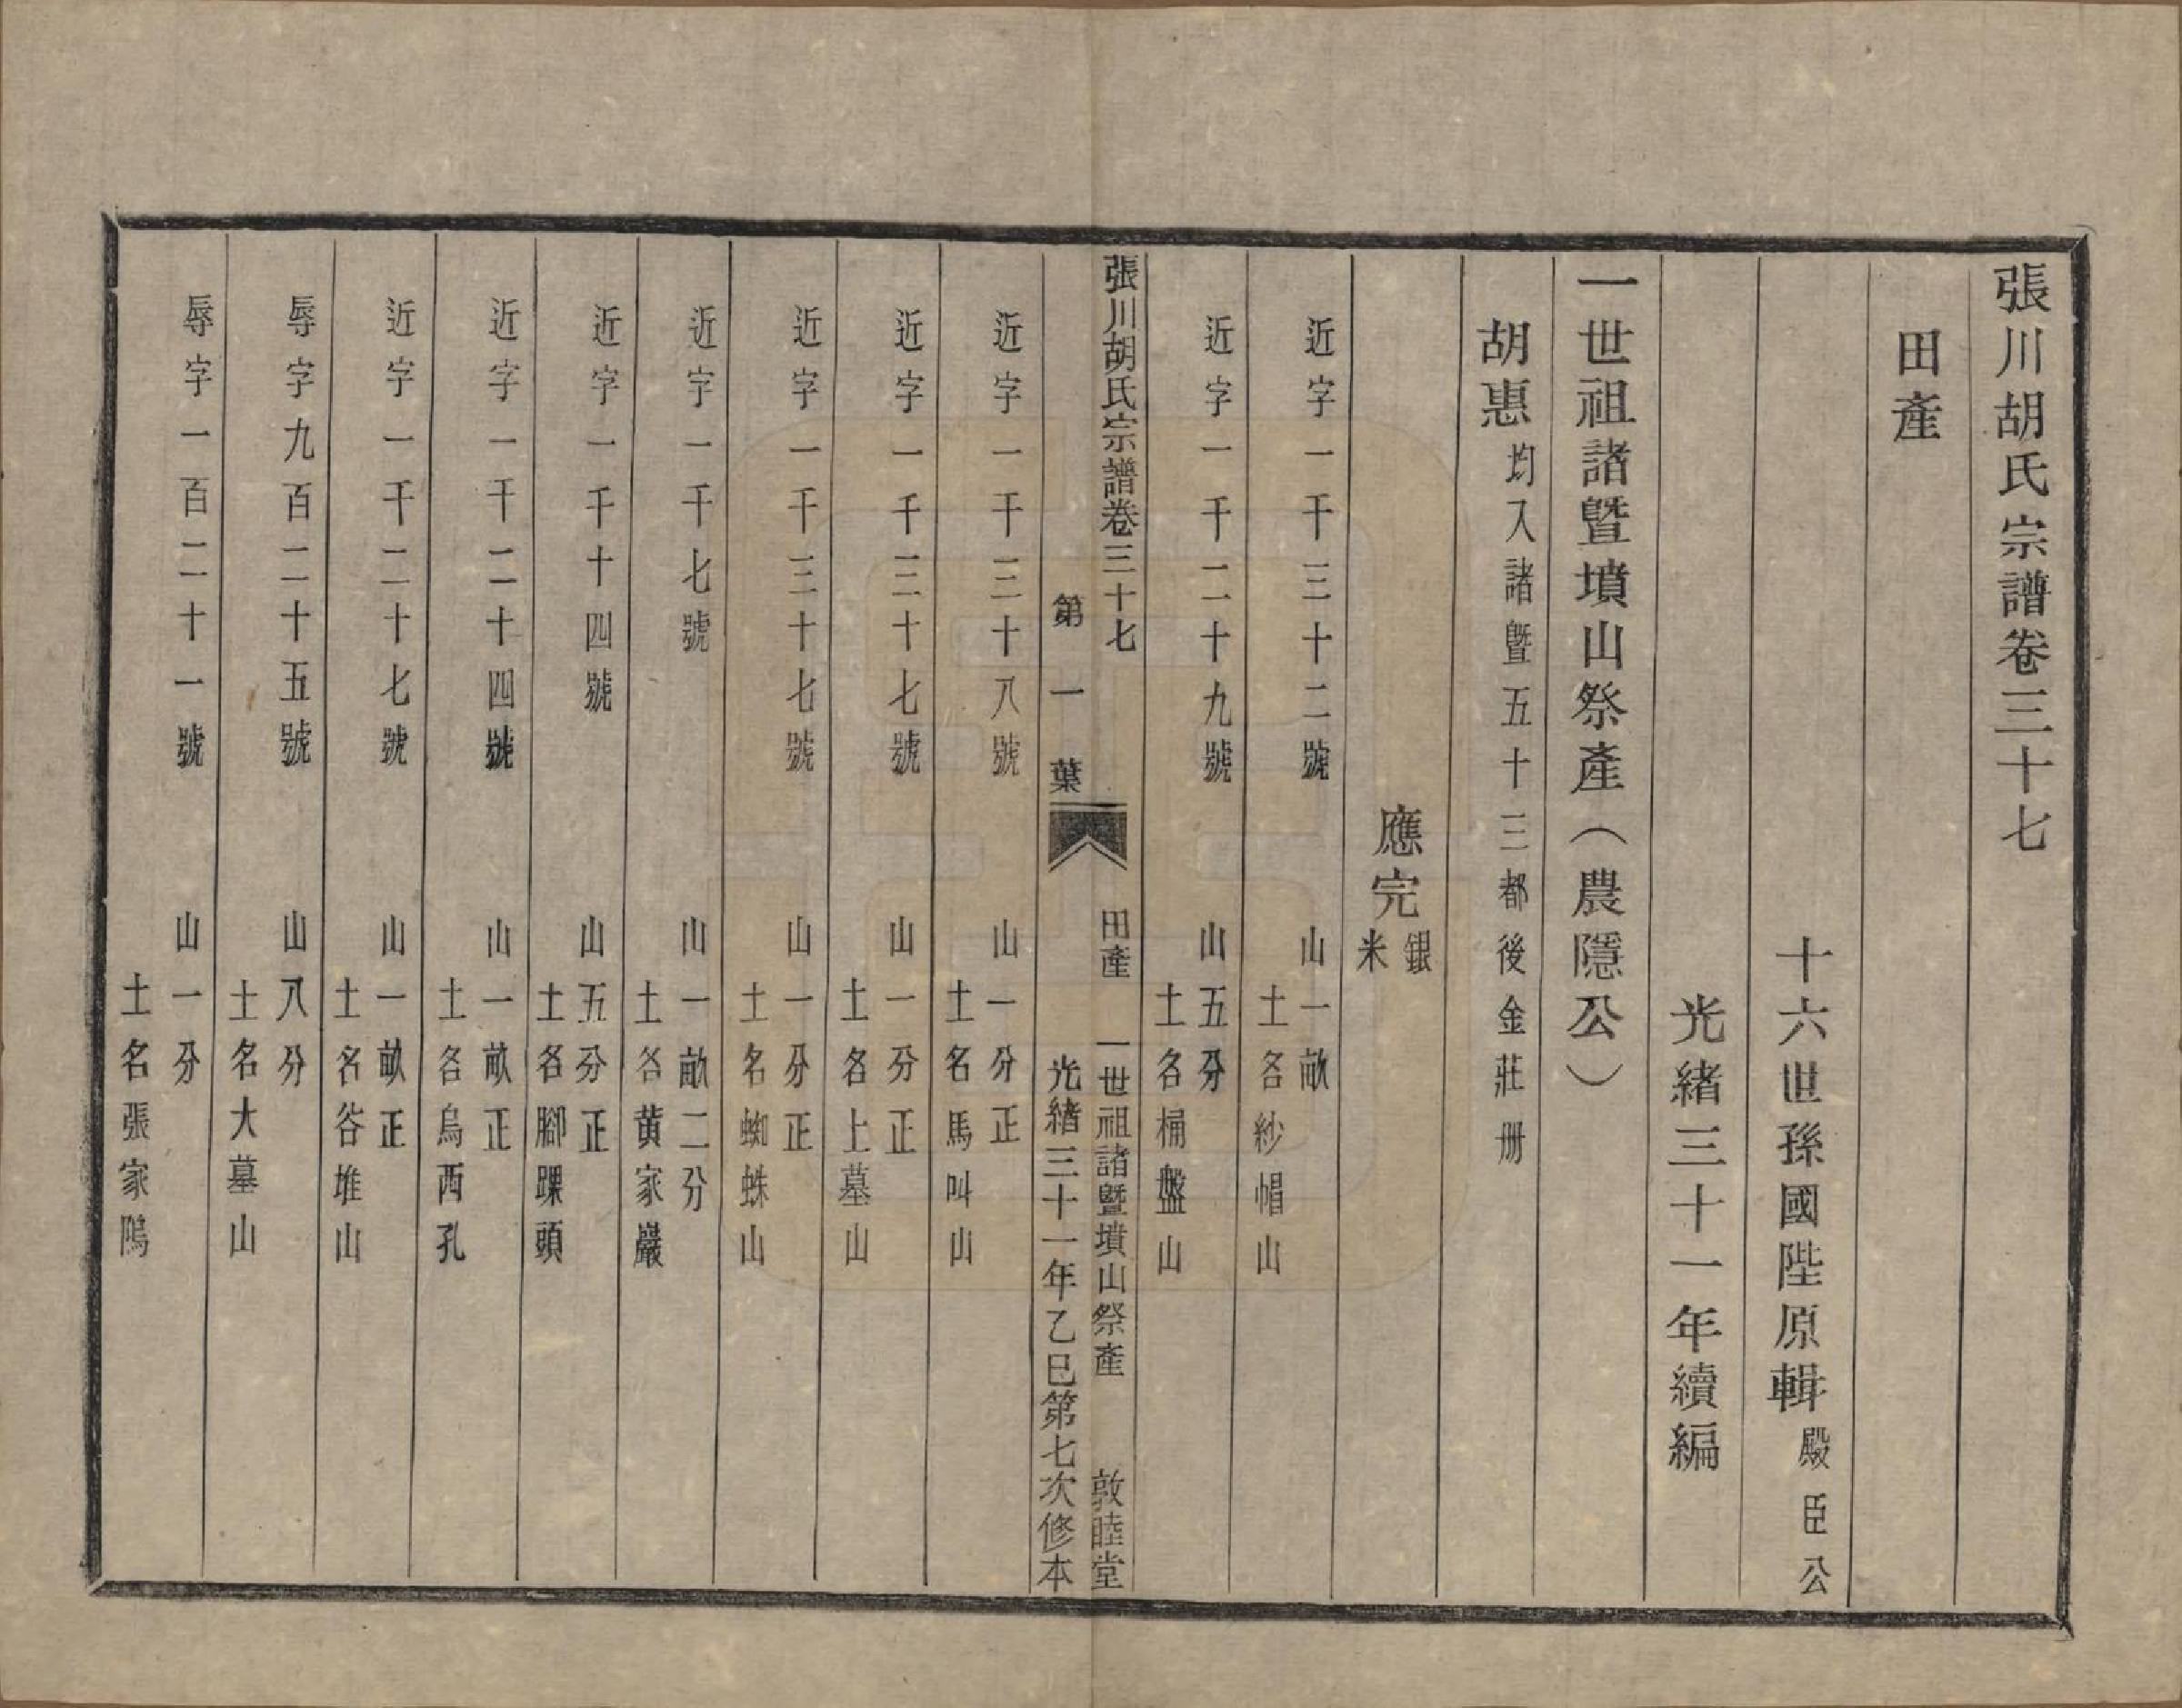 張川胡氏宗譜卷三十七
田產
十六世孫國陛原輯殿臣公
光緒三十一年續編
一世祖諸暨墳山祭產（農隱公）
胡惠均入諸暨五十三都後金莊册
應完銀米
近字一千三十二號 山一畝
土名紗帽山
近字一千二十九號 山五分
土名桶盤山
張川胡氏宗譜卷三十七 田產 一世祖諸暨墳山祭產 敦睦堂
第一葉 光緒三十一年乙巳第七次修本
近字一千三十八號 山一分正
土名馬叫山
近字一千三十七號 山一分正
土名上墓山
近字一千三十七號 山一分正
土名蜘蛛山
近字一千七號 山一畝二分
土名黄家巖
近字一千十四號 山五分正
土名腳踝頭
近字一千二十四號 山一畝正
土名烏西孔
近字一千二十七號 山一畝正
土名谷堆山
辱字九百二十五號 山八分
土名大墓山
辱字一百二十一號 山一分
土名張家隖